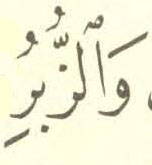 وَٱلزُّبُرِ